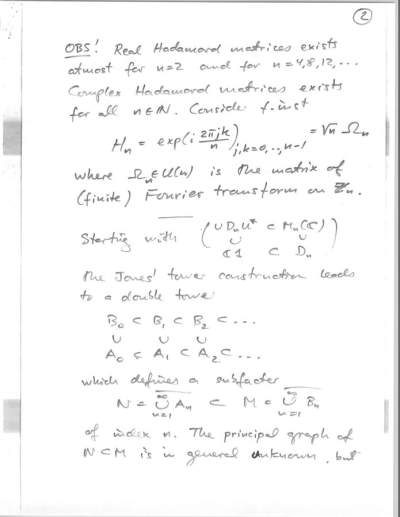 2
OBS! Real Hadamard matrices exists
atmost for n=2 and for n=4,8,12,...
Complex Hadamard matrices exists
for all n∈ℕ. Consider f.inst
H_n = exp(i 2πjk/n)_{j,k=0,..,n-1} = √n Ω_n
where Ω_n ∈ U(n) is the matrix of
(finite) Fourier transform on ℤ_n.
Starting with ( U D_n U* ⊂ M_n(ℂ)
∪ ∪
ℂ1 ⊂ D_n )
the Jones' tower construction leads
to a double tower
B_0 ⊂ B_1 ⊂ B_2 ⊂ ...
∪ ∪ ∪
A_0 ⊂ A_1 ⊂ A_2 ⊂ ...
which defines a subfactor
N = \overline{∪_{n=1}^∞ A_n} ⊂ M = \overline{∪_{n=1}^∞ B_n}
of index n. The principal graph of
N⊂M is in general unknown, but